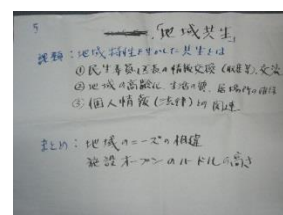 5 「地域共生」
課題:地域特性を生かした共生とは
①民生委員と区長の情報交換(順番)、交流
②地域の高齢化、生活の質、居場所の確保
③個人情報(法律)の関連
まとめ:地域のニーズの把握
施設オープンのハードルの高さ